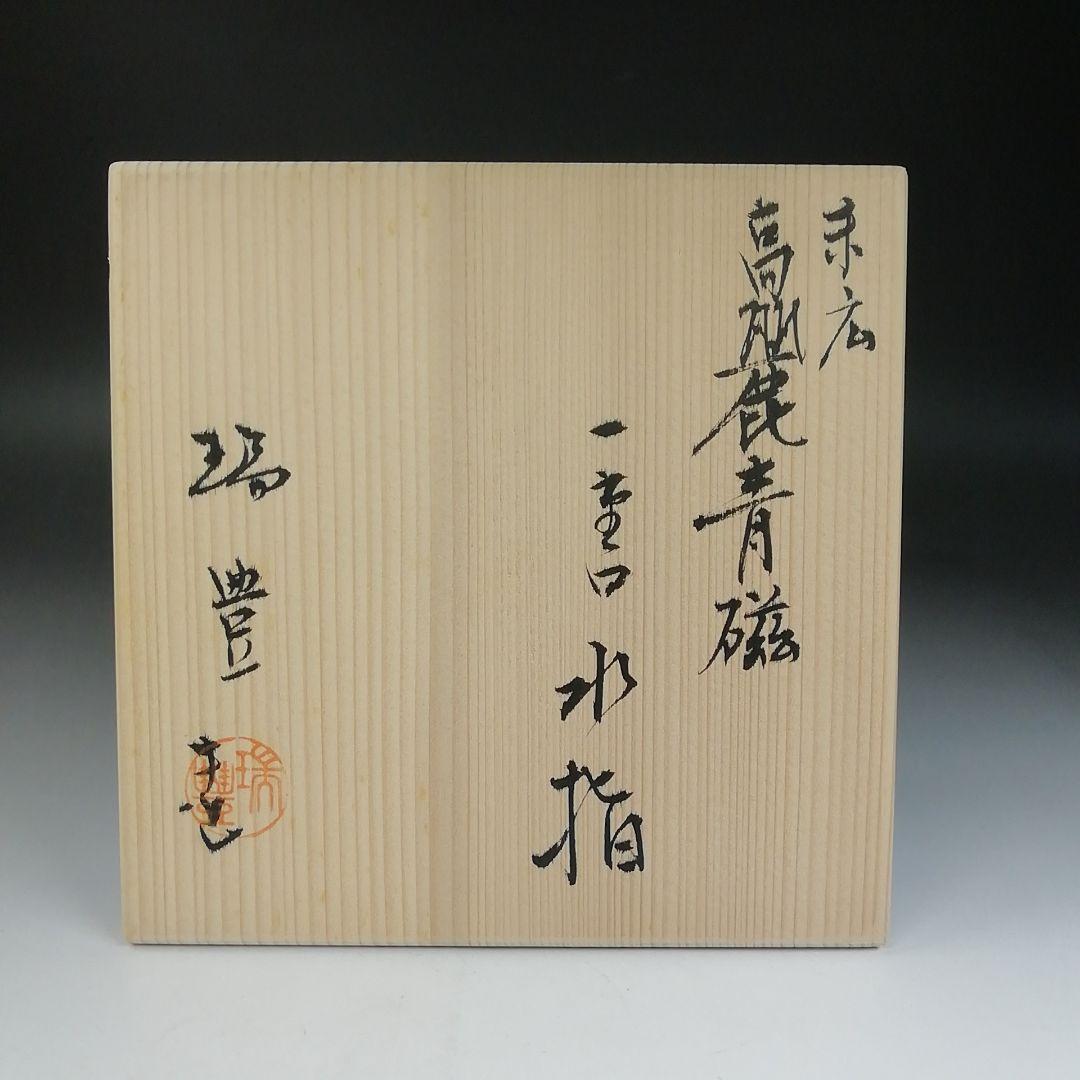 末広
高麗青磁
一重口水指
瑞豊造
瑞豐